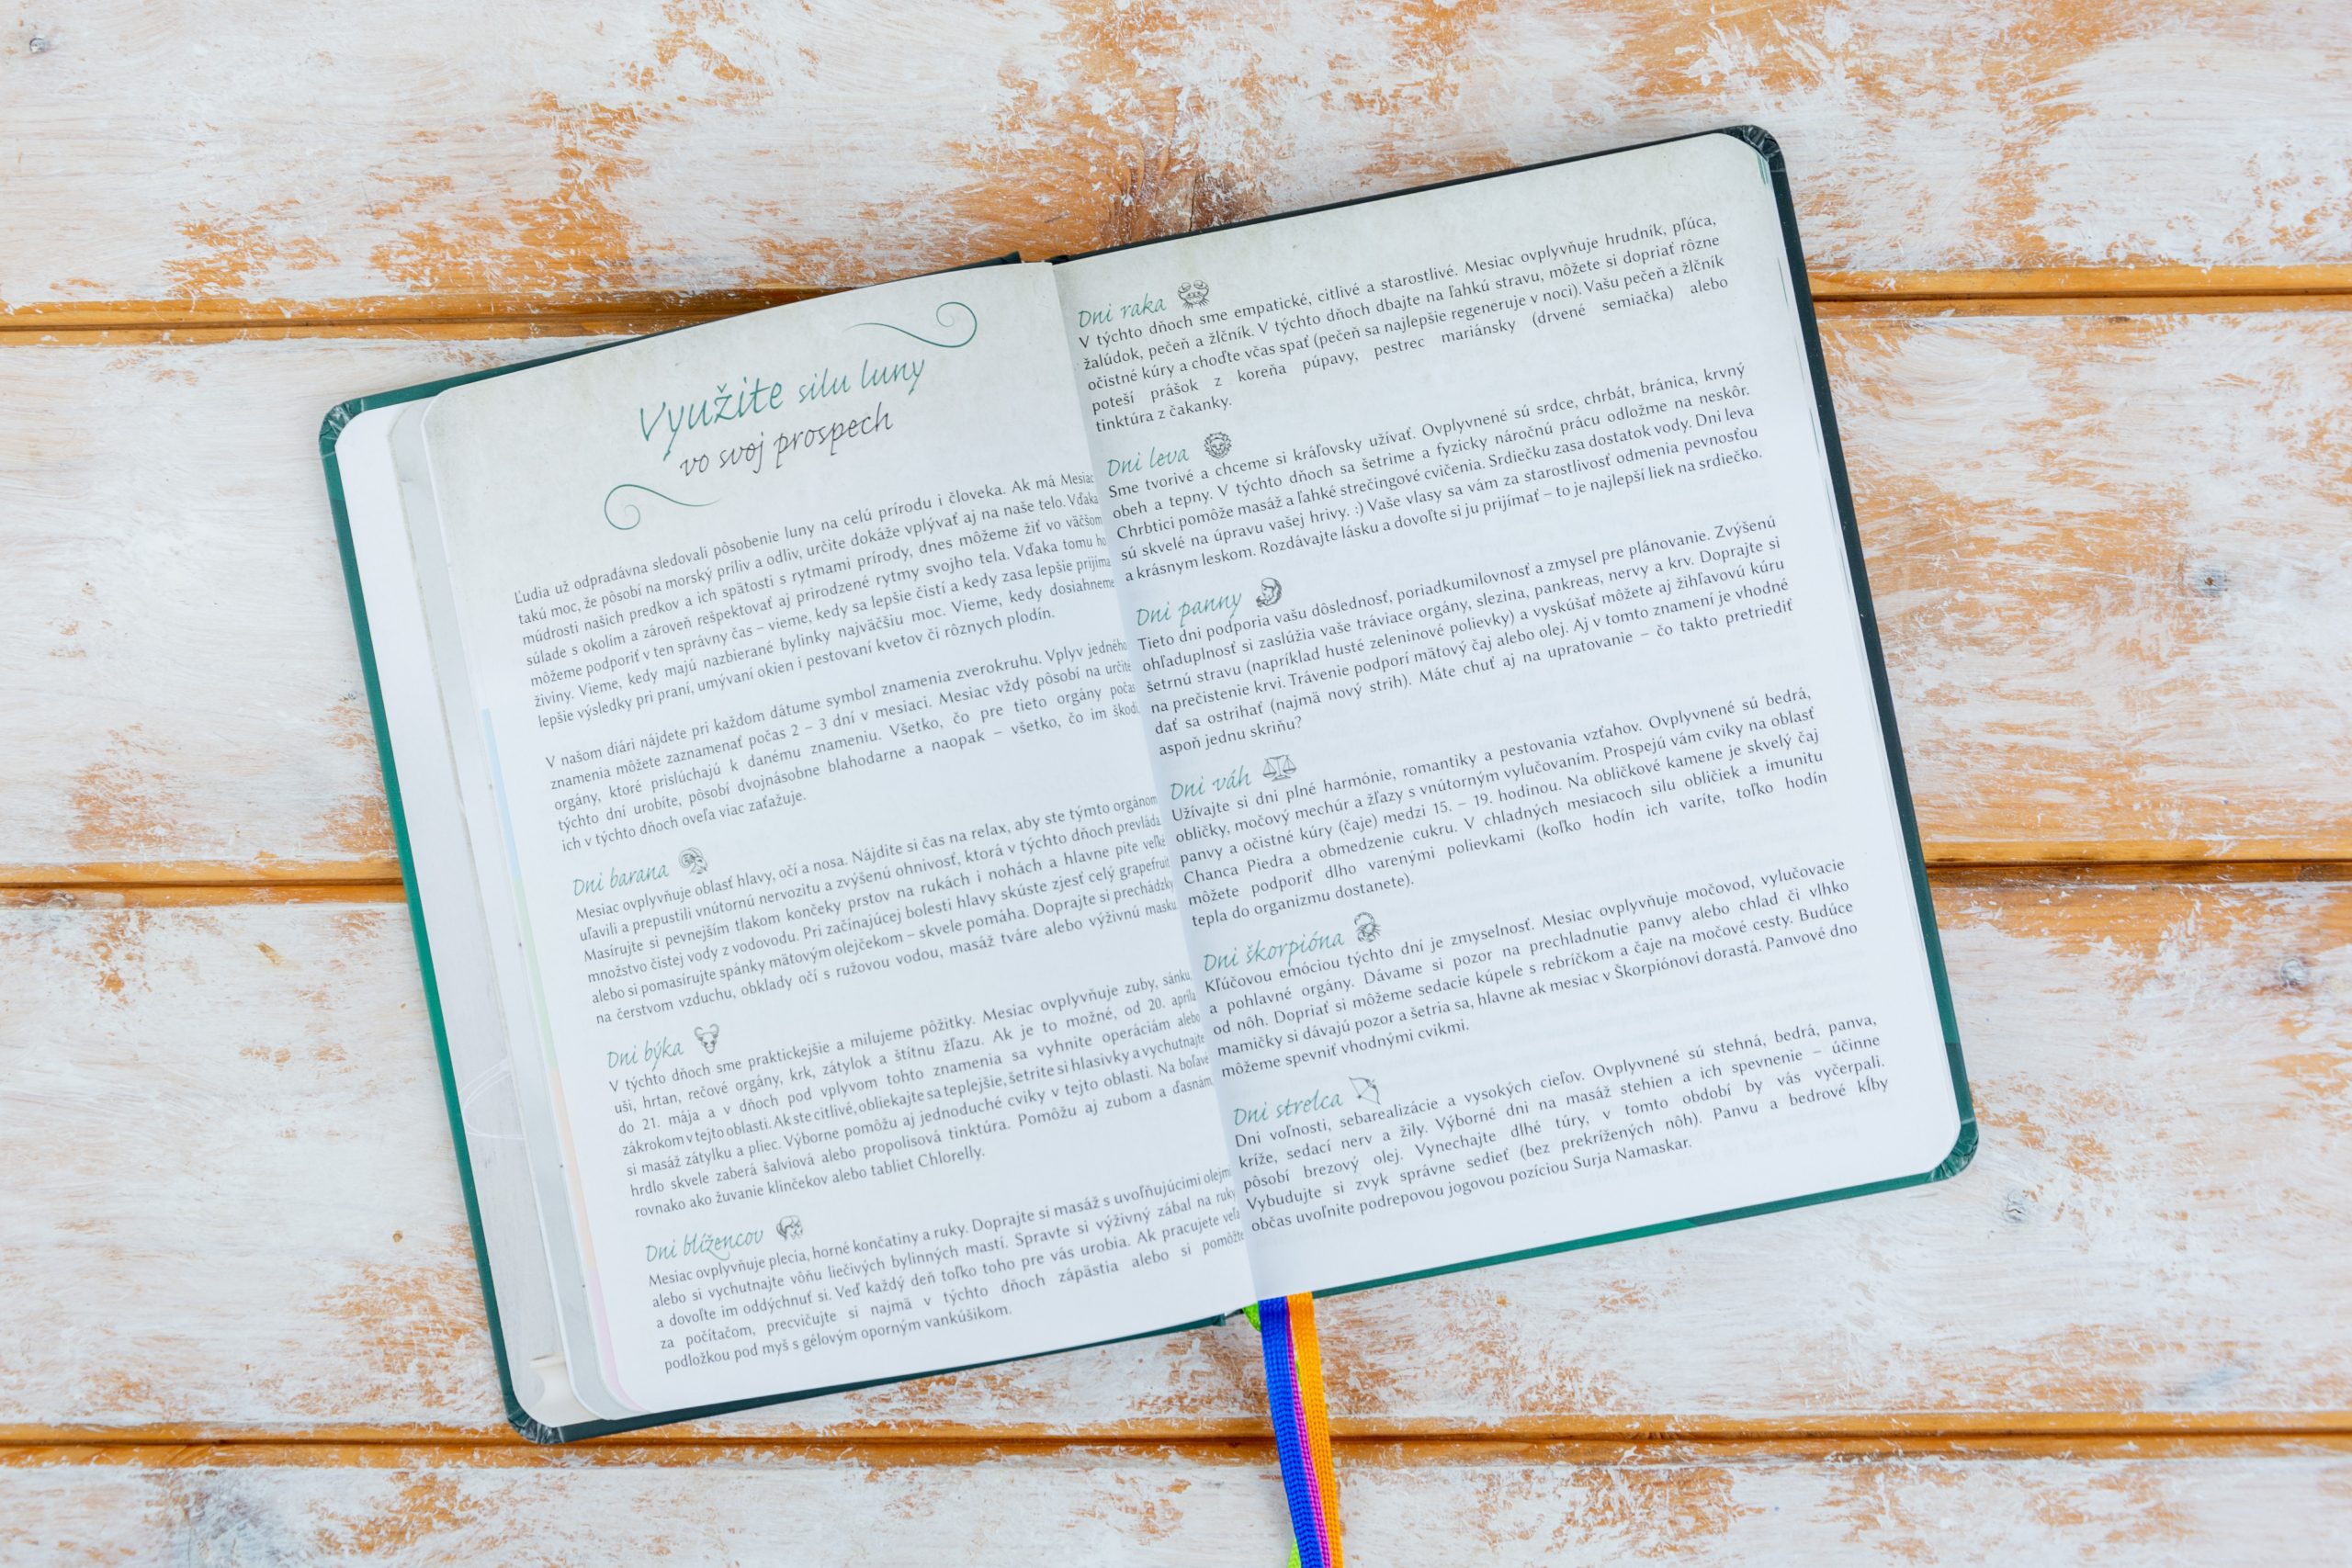 Využite silu luny
vo svoj prospech
Ľudia už odpradávna sledovali pôsobenie luny na celú prírodu i človeka. Ak má Mesiac
takú moc, že pôsobí na morský príliv a odliv, určite dokáže vplývať aj na naše telo. Vďaka
múdrosti našich predkov a ich spätosti s rytmami prírody, dnes môžeme žiť vo väčšom
súlade s okolím a zároveň rešpektovať aj prirodzené rytmy svojho tela. Vďaka tomu ho
môžeme podporiť v ten správny čas – vieme, kedy sa lepšie čistí a kedy zasa lepšie prijíma
živiny. Vieme, kedy majú nazbierané bylinky najväčšiu moc. Vieme, kedy dosiahneme
lepšie výsledky pri praní, umývaní okien i pestovaní kvetov či rôznych plodín.
V našom diári nájdete pri každom dátume symbol znamenia zverokruhu. Vplyv jedného
znamenia môžete zaznamenať počas 2 – 3 dní v mesiaci. Mesiac vždy pôsobí na určité
orgány, ktoré prislúchajú k danému znameniu. Všetko, čo pre tieto orgány počas
týchto dní urobíte, pôsobí dvojnásobne blahodarne a naopak – všetko, čo im škodí,
ich v týchto dňoch oveľa viac zaťažuje.
Dni barana
Mesiac ovplyvňuje oblasť hlavy, očí a nosa. Nájdite si čas na relax, aby ste týmto orgánom
uľavili a prepustili vnútornú nervozitu a zvýšenú ohnivosť, ktorá v týchto dňoch prevláda.
Masírujte si pevnejším tlakom končeky prstov na rukách i nohách a hlavne pite veľké
množstvo čistej vody z vodovodu. Pri začínajúcej bolesti hlavy skúste zjesť celý grapefruit
alebo si pomasírujte spánky mätovým olejčekom – skvele pomáha. Doprajte si prechádzky
na čerstvom vzduchu, obklady očí s ružovou vodou, masáž tváre alebo výživnú masku.
Dni býka
V týchto dňoch sme praktickejšie a milujeme pôžitky. Mesiac ovplyvňuje zuby, sánku,
uši, hrtan, rečové orgány, krk, zátylok a štítnu žľazu. Ak je to možné, od 20. apríla
do 21. mája a v dňoch pod vplyvom tohto znamenia sa vyhnite operáciám alebo
zákrokom v tejto oblasti. Ak ste citlivé, obliekajte sa teplejšie, šetrite si hlasivky a vychutnajte
si masáž zátylku a pliec. Výborne pomôžu aj jednoduché cviky v tejto oblasti. Na boľavé
hrdlo skvele zaberá šalviová alebo propolisová tinktúra. Pomôžu aj zubom a ďasnám,
rovnako ako žuvanie klinčekov alebo tabliet Chlorelly.
Dni blížencov
Mesiac ovplyvňuje plecia, horné končatiny a ruky. Doprajte si masáž s uvoľňujúcimi olejmi
alebo si vychutnajte vôňu liečivých bylinných mastí. Spravte si výživný zábal na ruky
a dovoľte im oddýchnuť si. Veď každý deň toľko toho pre vás urobia. Ak pracujete veľa
za počítačom, precvičujte si najmä v týchto dňoch zápästia alebo si pomôžte
podložkou pod myš s gélovým oporným vankúšikom.
Dni raka
V týchto dňoch sme empatické, citlivé a starostlivé. Mesiac ovplyvňuje hrudník, pľúca,
žalúdok, pečeň a žlčník. V týchto dňoch dbajte na ľahkú stravu, môžete si dopriať rôzne
očistné kúry a choďte včas spať (pečeň sa najlepšie regeneruje v noci). Vašu pečeň a žlčník
poteší prášok z koreňa púpavy, pestrec mariánsky (drvené semiačka) alebo
tinktúra z čakanky.
Dni leva
Sme tvorivé a chceme si kráľovsky užívať. Ovplyvnené sú srdce, chrbát, bránica, krvný
obeh a tepny. V týchto dňoch sa šetrime a fyzicky náročnú prácu odložme na neskôr.
Chrbtici pomôže masáž a ľahké strečingové cvičenia. Srdiečku zasa dostatok vody. Dni leva
sú skvelé na úpravu vašej hrivy. :) Vaše vlasy sa vám za starostlivosť odmenia pevnosťou
a krásnym leskom. Rozdávajte lásku a dovoľte si ju prijímať – to je najlepší liek na srdiečko.
Dni panny
Tieto dni podporia vašu dôslednosť, poriadkumilovnosť a zmysel pre plánovanie. Zvýšenú
ohľaduplnosť si zaslúžia vaše tráviace orgány, slezina, pankreas, nervy a krv. Doprajte si
šetrnú stravu (napríklad husté zeleninové polievky) a vyskúšať môžete aj žihľavovú kúru
na prečistenie krvi. Trávenie podporí mätový čaj alebo olej. Aj v tomto znamení je vhodné
dať sa ostrihať (najmä nový strih). Máte chuť aj na upratovanie – čo takto pretriediť
aspoň jednu skriňu?
Dni váh
Užívajte si dni plné harmónie, romantiky a pestovania vzťahov. Ovplyvnené sú bedrá,
obličky, močový mechúr a žľazy s vnútorným vylučovaním. Prospejú vám cviky na oblasť
panvy a očistné kúry (čaje) medzi 15. – 19. hodinou. Na obličkové kamene je skvelý čaj
Chanca Piedra a obmedzenie cukru. V chladných mesiacoch silu obličiek a imunitu
môžete podporiť dlho varenými polievkami (koľko hodín ich varíte, toľko hodín
tepla do organizmu dostanete).
Dni škorpióna
Kľúčovou emóciou týchto dní je zmyselnosť. Mesiac ovplyvňuje močovod, vylučovacie
a pohlavné orgány. Dávame si pozor na prechladnutie panvy alebo chlad či vlhko
od nôh. Dopriať si môžeme sedacie kúpele s rebríčkom a čaje na močové cesty. Budúce
mamičky si dávajú pozor a šetria sa, hlavne ak mesiac v Škorpiónovi dorastá. Panvové dno
môžeme spevniť vhodnými cvikmi.
Dni strelca
Dni voľnosti, sebarealizácie a vysokých cieľov. Ovplyvnené sú stehná, bedrá, panva,
kríže, sedací nerv a žily. Výborné dni na masáž stehien a ich spevnenie – účinne
pôsobí brezový olej. Vynechajte dlhé túry, v tomto období by vás vyčerpali.
Vybudujte si zvyk správne sedieť (bez prekrížených nôh). Panvu a bedrové kĺby
občas uvoľnite podrepovou jogovou pozíciou Surja Namaskar.